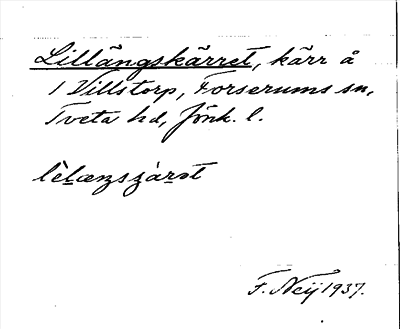 Lillängskärret, kärr å
1 Villstorp, Forserums sn,
Tveta hd, Jönk. l.
F. Neij 1937.